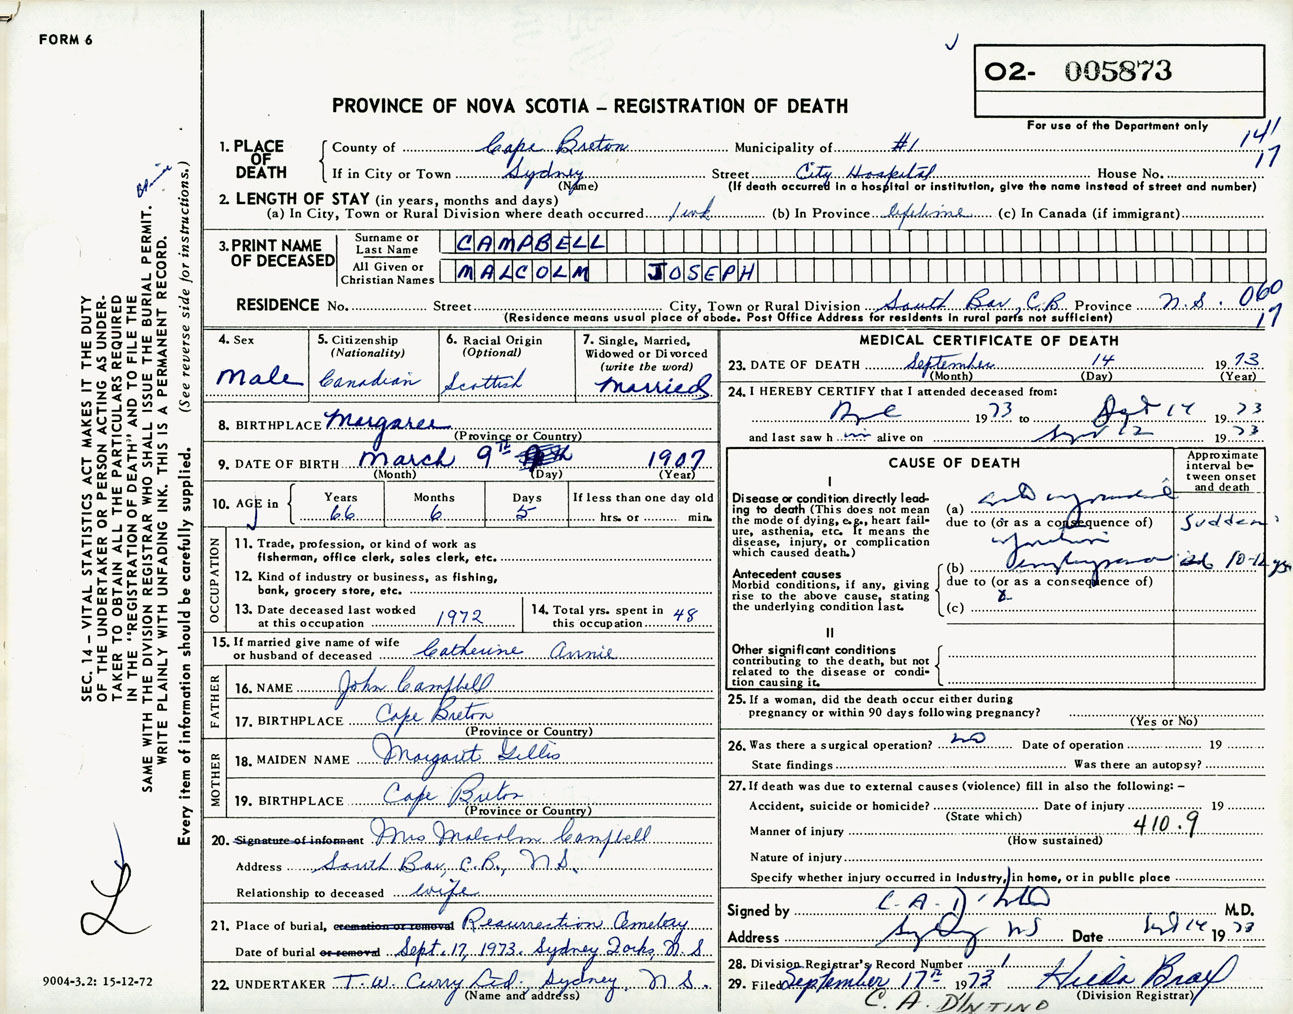 FORM 6
O2- 005873
For use of the Department only
PROVINCE OF NOVA SCOTIA – REGISTRATION OF DEATH
141
17
1. PLACE OF DEATH
County of Cape Breton Municipality of #1
If in City or Town Sydney Street City Hospital House No.
(Name) (If death occurred in a hospital or institution, give the name instead of street and number)
2. LENGTH OF STAY (in years, months and days)
(a) In City, Town or Rural Division where death occurred 1 wk (b) In Province lifetime (c) In Canada (if immigrant)
3. PRINT NAME OF DECEASED
Surname or Last Name CAMPBELL
All Given or Christian Names MALCOLM JOSEPH
RESIDENCE No. Street City, Town or Rural Division South Bar, C.B. Province N.S. 060
17
(Residence means usual place of abode. Post Office Address for residents in rural parts not sufficient)
4. Sex Male
5. Citizenship (Nationality) Canadian
6. Racial Origin (Optional) Scottish
7. Single, Married, Widowed or Divorced (write the word) Married
8. BIRTHPLACE Margaree
(Province or Country)
9. DATE OF BIRTH March 9TH 1907
(Month) (Day) (Year)
10. AGE in Years 66 Months 6 Days 5 If less than one day old hrs. or min.
OCCUPATION
11. Trade, profession, or kind of work as fisherman, office clerk, sales clerk, etc.
12. Kind of industry or business, as fishing, bank, grocery store, etc.
13. Date deceased last worked at this occupation 1972
14. Total yrs. spent in this occupation 48
15. If married give name of wife or husband of deceased Catherine Annie
FATHER
16. NAME John Campbell
17. BIRTHPLACE Cape Breton
(Province or Country)
MOTHER
18. MAIDEN NAME Margaret Gillis
19. BIRTHPLACE Cape Breton
(Province or Country)
20. Signature of informant Mrs Malcolm Campbell
Address South Bar, C.B., N.S.
Relationship to deceased wife
21. Place of burial, cremation or removal Resurrection Cemetery
Date of burial or removal Sept. 17, 1973. Sydney Forks, N.S
22. UNDERTAKER T.W. Curry Ltd., Sydney, N.S.
(Name and address)
MEDICAL CERTIFICATE OF DEATH
23. DATE OF DEATH September 14 1973
(Month) (Day) (Year)
24. I HEREBY CERTIFY that I attended deceased from:
1973 to Sept 14 1973
and last saw h im alive on Sept 12 1973
CAUSE OF DEATH
Approximate interval between onset and death
I
Disease or condition directly leading to death (This does not mean the mode of dying, e.g., heart failure, asthenia, etc. It means the disease, injury, or complication which caused death.)
(a)
due to (or as a consequence of) Sudden
Antecedent causes
Morbid conditions, if any, giving rise to the above cause, stating the underlying condition last.
(b) 10-12 yrs
due to (or as a consequence of)
(c)
II
Other significant conditions
contributing to the death, but not related to the disease or condition causing it.
25. If a woman, did the death occur either during pregnancy or within 90 days following pregnancy?
(Yes or No)
26. Was there a surgical operation? no Date of operation 19
State findings Was there an autopsy?
27. If death was due to external causes (violence) fill in also the following: –
Accident, suicide or homicide? Date of injury 19
(State which)
Manner of injury 410.9
(How sustained)
Nature of injury
Specify whether injury occurred in Industry, in home, or in public place
Signed by C. A. D'Intino M.D.
Address Sydney NS Date Sept 14 1973
28. Division Registrar's Record Number 1
29. Filed September 17th 1973 Hilda
(Division Registrar)
C. A. D'INTINO
SEC. 14 – VITAL STATISTICS ACT MAKES IT THE DUTY
OF THE UNDERTAKER OR PERSON ACTING AS UNDER-
TAKER TO OBTAIN ALL THE PARTICULARS REQUIRED
IN THE "REGISTRATION OF DEATH" AND TO FILE THE
SAME WITH THE DIVISION REGISTRAR WHO SHALL ISSUE THE BURIAL PERMIT.
WRITE PLAINLY WITH UNFADING INK. THIS IS A PERMANENT RECORD.
Every item of information should be carefully supplied. (See reverse side for instructions.)
9004-3.2: 15-12-72